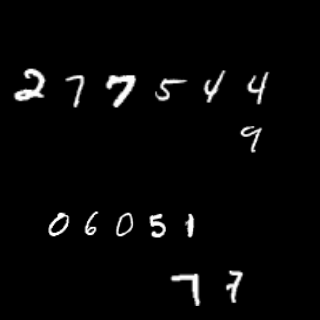 277544
9
06051
77